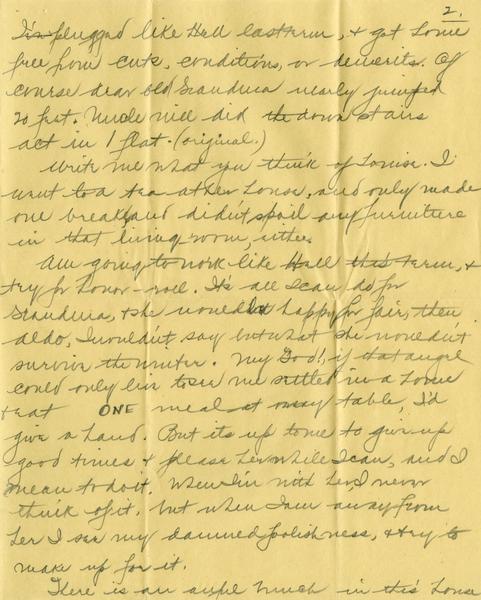 2.
I'm plugged like Hell last term, & got home
free from cuts, conditions, or demerits. Of
course dear old Grandma nearly jumped
20 feet. Uncle Will did the down stairs
act in 1 flat. (original.)
Write me what you think of Louise. I
went to a tea at her house, and only made
one break, and didn't spoil any furniture
in that living room, either.
Am going to work like Hell this term, &
try for honor-roll. It's all I can do for
Grandma, & she would be happy for fair, then
also, I wouldn't say but what she wouldn't
survive the winter. My God!, if that angel
could only live to see me settled in a home
& eat ONE meal at my table, I'd
give a hand. But its up to me to give up
good times & please her while I can, and I
mean to do it. When I'm with her, I never
think of it, but when I am away from
her I see my damned foolishness, & try to
make up for it.
There is an awful much in this house